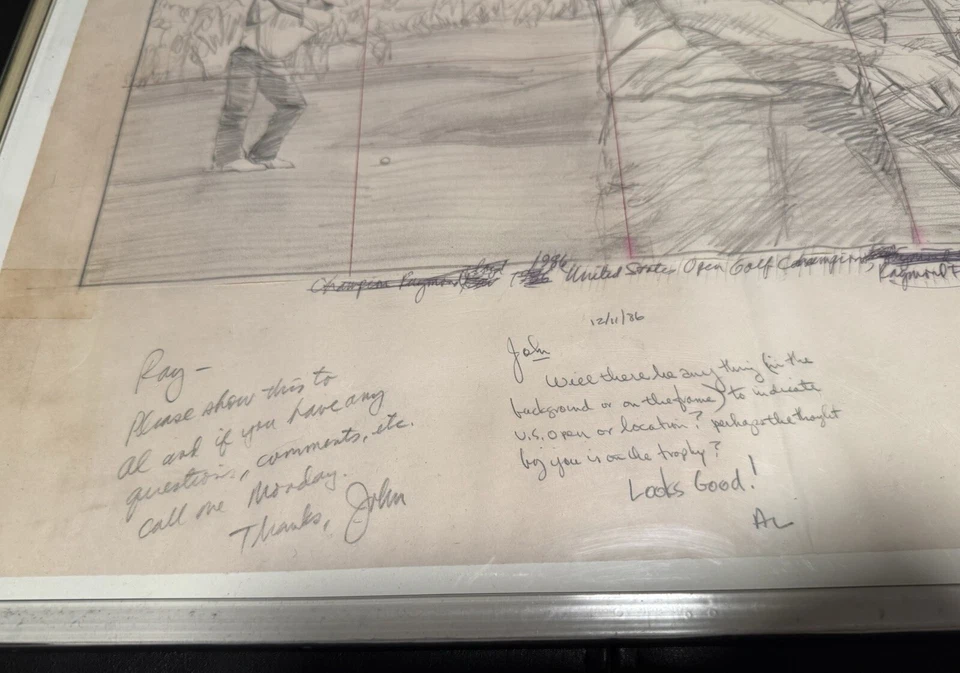 Champion Raymond 1986 United States Open Golf Champion
Raymond F
Ray -
Please show this to
Al and if you have any
questions, comments, etc.
call me Monday.
Thanks, John
12/11/86
John
Will there be anything (in the
background or on the frame) to indicate
U.S. Open or location? perhaps the thought
by you is on the trophy?
Looks Good!
AL